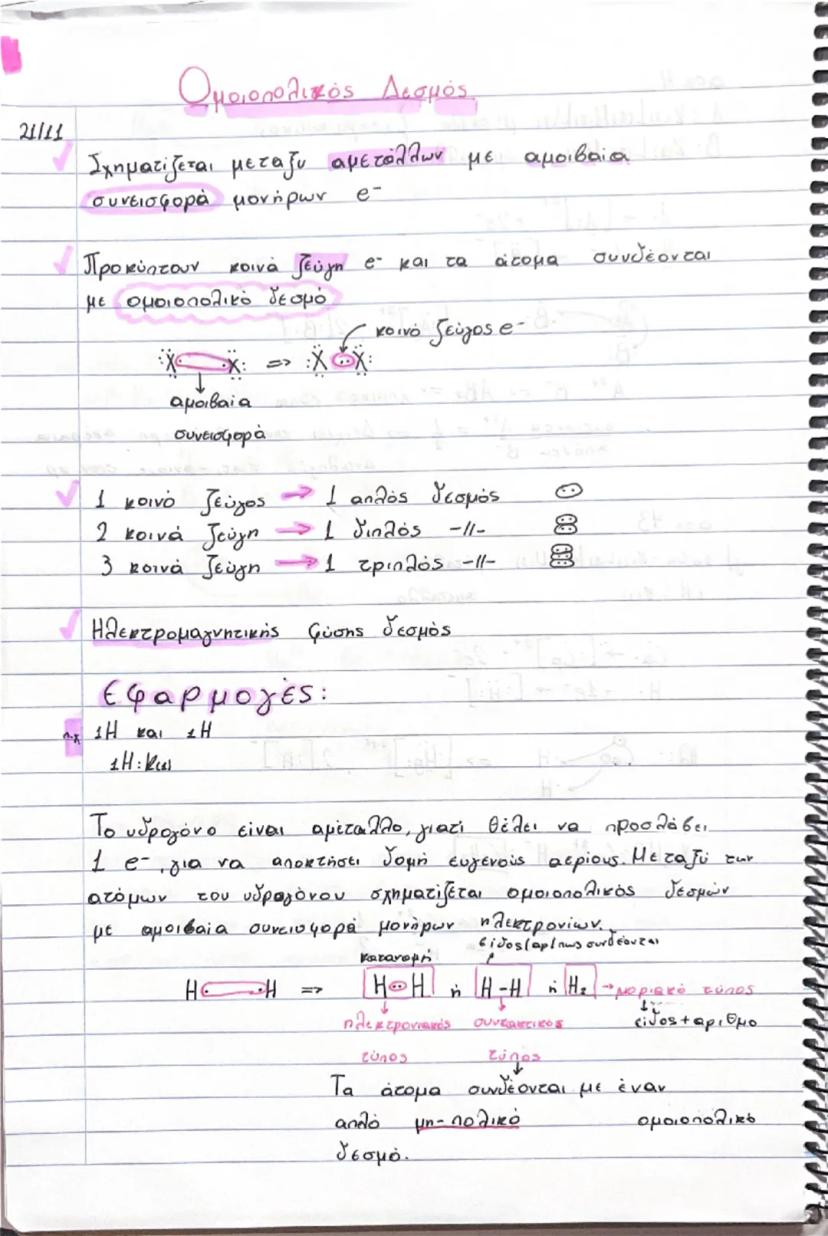 Ομοιοπολικός Δεσμός
21/11
Σχηματίζεται μεταξύ αμετάλλων με αμοιβαία
συνεισφορά μονήρων e-
Προκύπτουν κοινά ζεύγη e- και τα άτομα συνδέονται
με ομοιοπολικό δεσμό
κοινό ζεύγος e-
:Ẍ· ·Ẍ: => :Ẍ:Ẍ:
αμοιβαία
συνεισφορά
1 κοινό ζεύγος → 1 απλός δεσμός
2 κοινά ζεύγη → 1 διπλός -//-
3 κοινά ζεύγη → 1 τριπλός -//-
Ηλεκτρομαγνητικής φύσης δεσμός
Εφαρμογές:
π.χ 1H και 1H
1H: K(1)
Το υδρογόνο είναι αμέταλλο, γιατί θέλει να προσλάβει
1 e-, για να αποκτήσει δομή ευγενούς αερίους. Μεταξύ των
ατόμων του υδρογόνου σχηματίζεται ομοιοπολικός δεσμών
με αμοιβαία συνεισφορά μονήρων ηλεκτρονίων.
κατανομή είδος/αρ/πως συνδέονται
H· ·H => H:H ή H-H ή H2 → μοριακό τύπος
ηλεκτρονιακός συντακτικος είδος+αριθμο
τύπος τύπος
Τα άτομα συνδέονται με έναν
απλό μη-πολικό ομοιοπολικό
δεσμό.